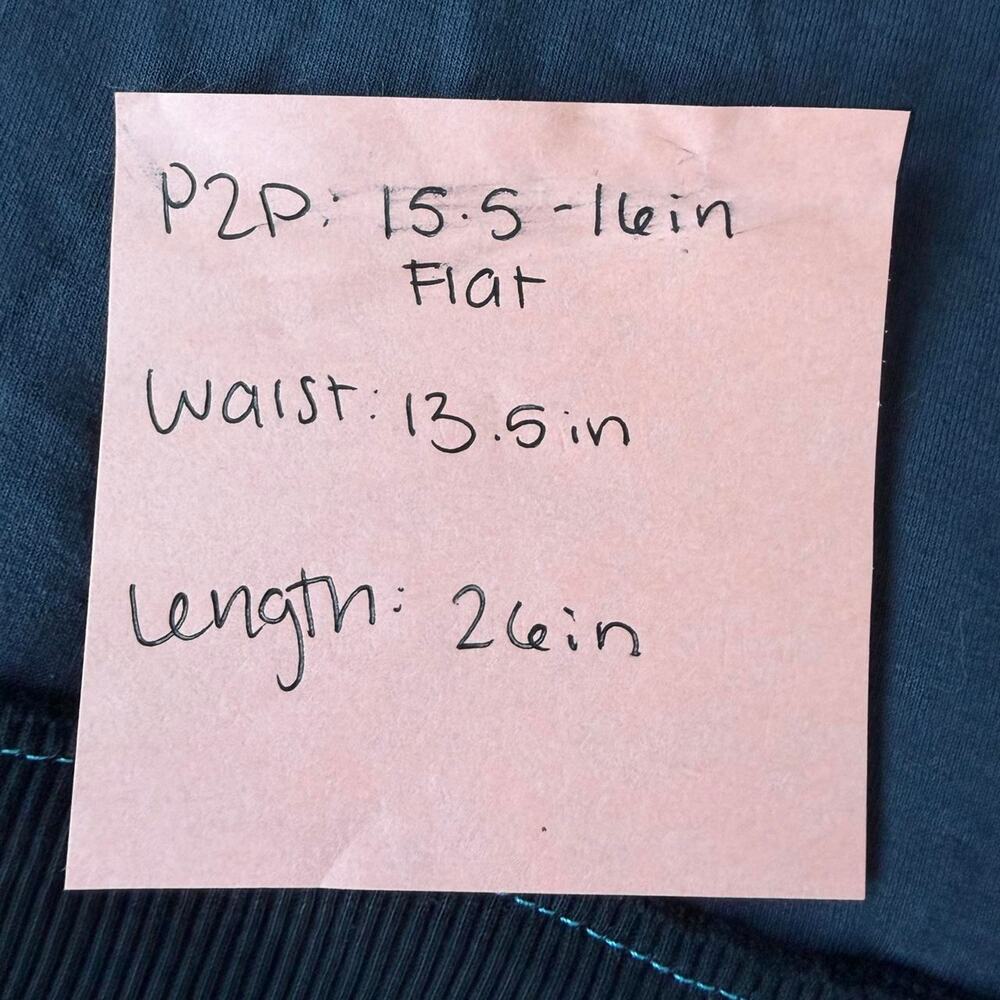 P2P: 15.5 - 16in
Flat
Waist: 13.5in
Length: 26in